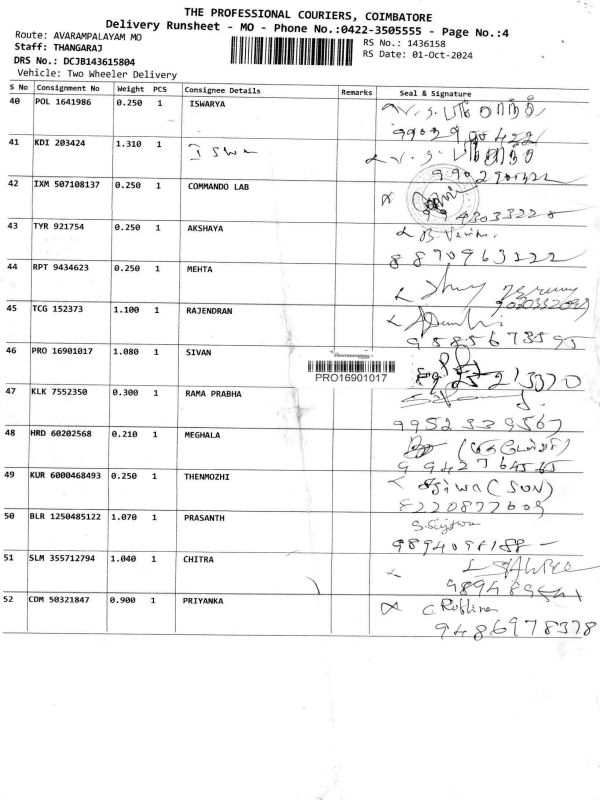 THE PROFESSIONAL COURIERS, COIMBATORE
Delivery Runsheet - MO - Phone No.:0422-3505555 - Page No.:4
Route: AVARAMPALAYAM MO
RS No.: 1436158
Staff: THANGARAJ
RS Date: 01-Oct-2024
DRS No.: DCJB143615804
Vehicle: Two Wheeler Delivery
S No Consignment No Weight PCS Consignee Details Remarks Seal & Signature
40 POL 1641986 0.250 1 ISWARYA
41 KDI 203424 1.310 1
42 IXM 507108137 0.250 1 COMMANDO LAB
43 TYR 921754 0.250 1 AKSHAYA
8870963222
44 RPT 9434623 0.250 1 MEHTA
45 TCG 152373 1.100 1 RAJENDRAN
9585673595
46 PRO 16901017 1.080 1 SIVAN
PRO16901017
47 KLK 7552350 0.300 1 RAMA PRABHA
9952339567
48 HRD 60202568 0.210 1 MEGHALA
49 KUR 6000468493 0.250 1 THENMOZHI
(SON)
8220877609
50 BLR 1250485122 1.070 1 PRASANTH
51 SLM 355712794 1.040 1 CHITRA
52 CDM 50321847 0.900 1 PRIYANKA
9486978378